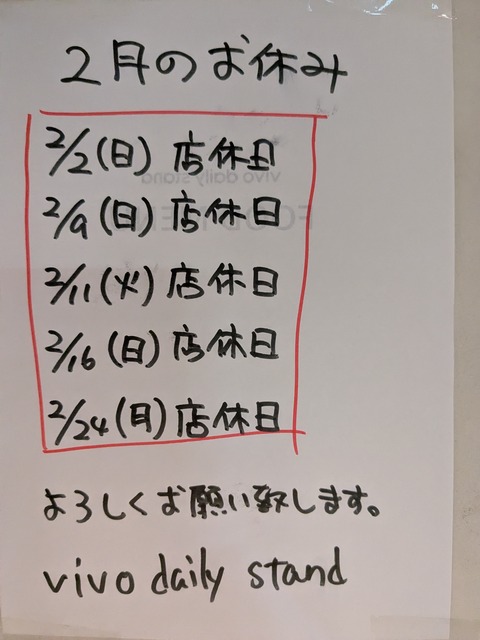 2月のお休み
2/2(日)店休日
2/9(日)店休日
2/11(火)店休日
2/16(日)店休日
2/24(月)店休日
よろしくお願い致します。
vivo daily stand